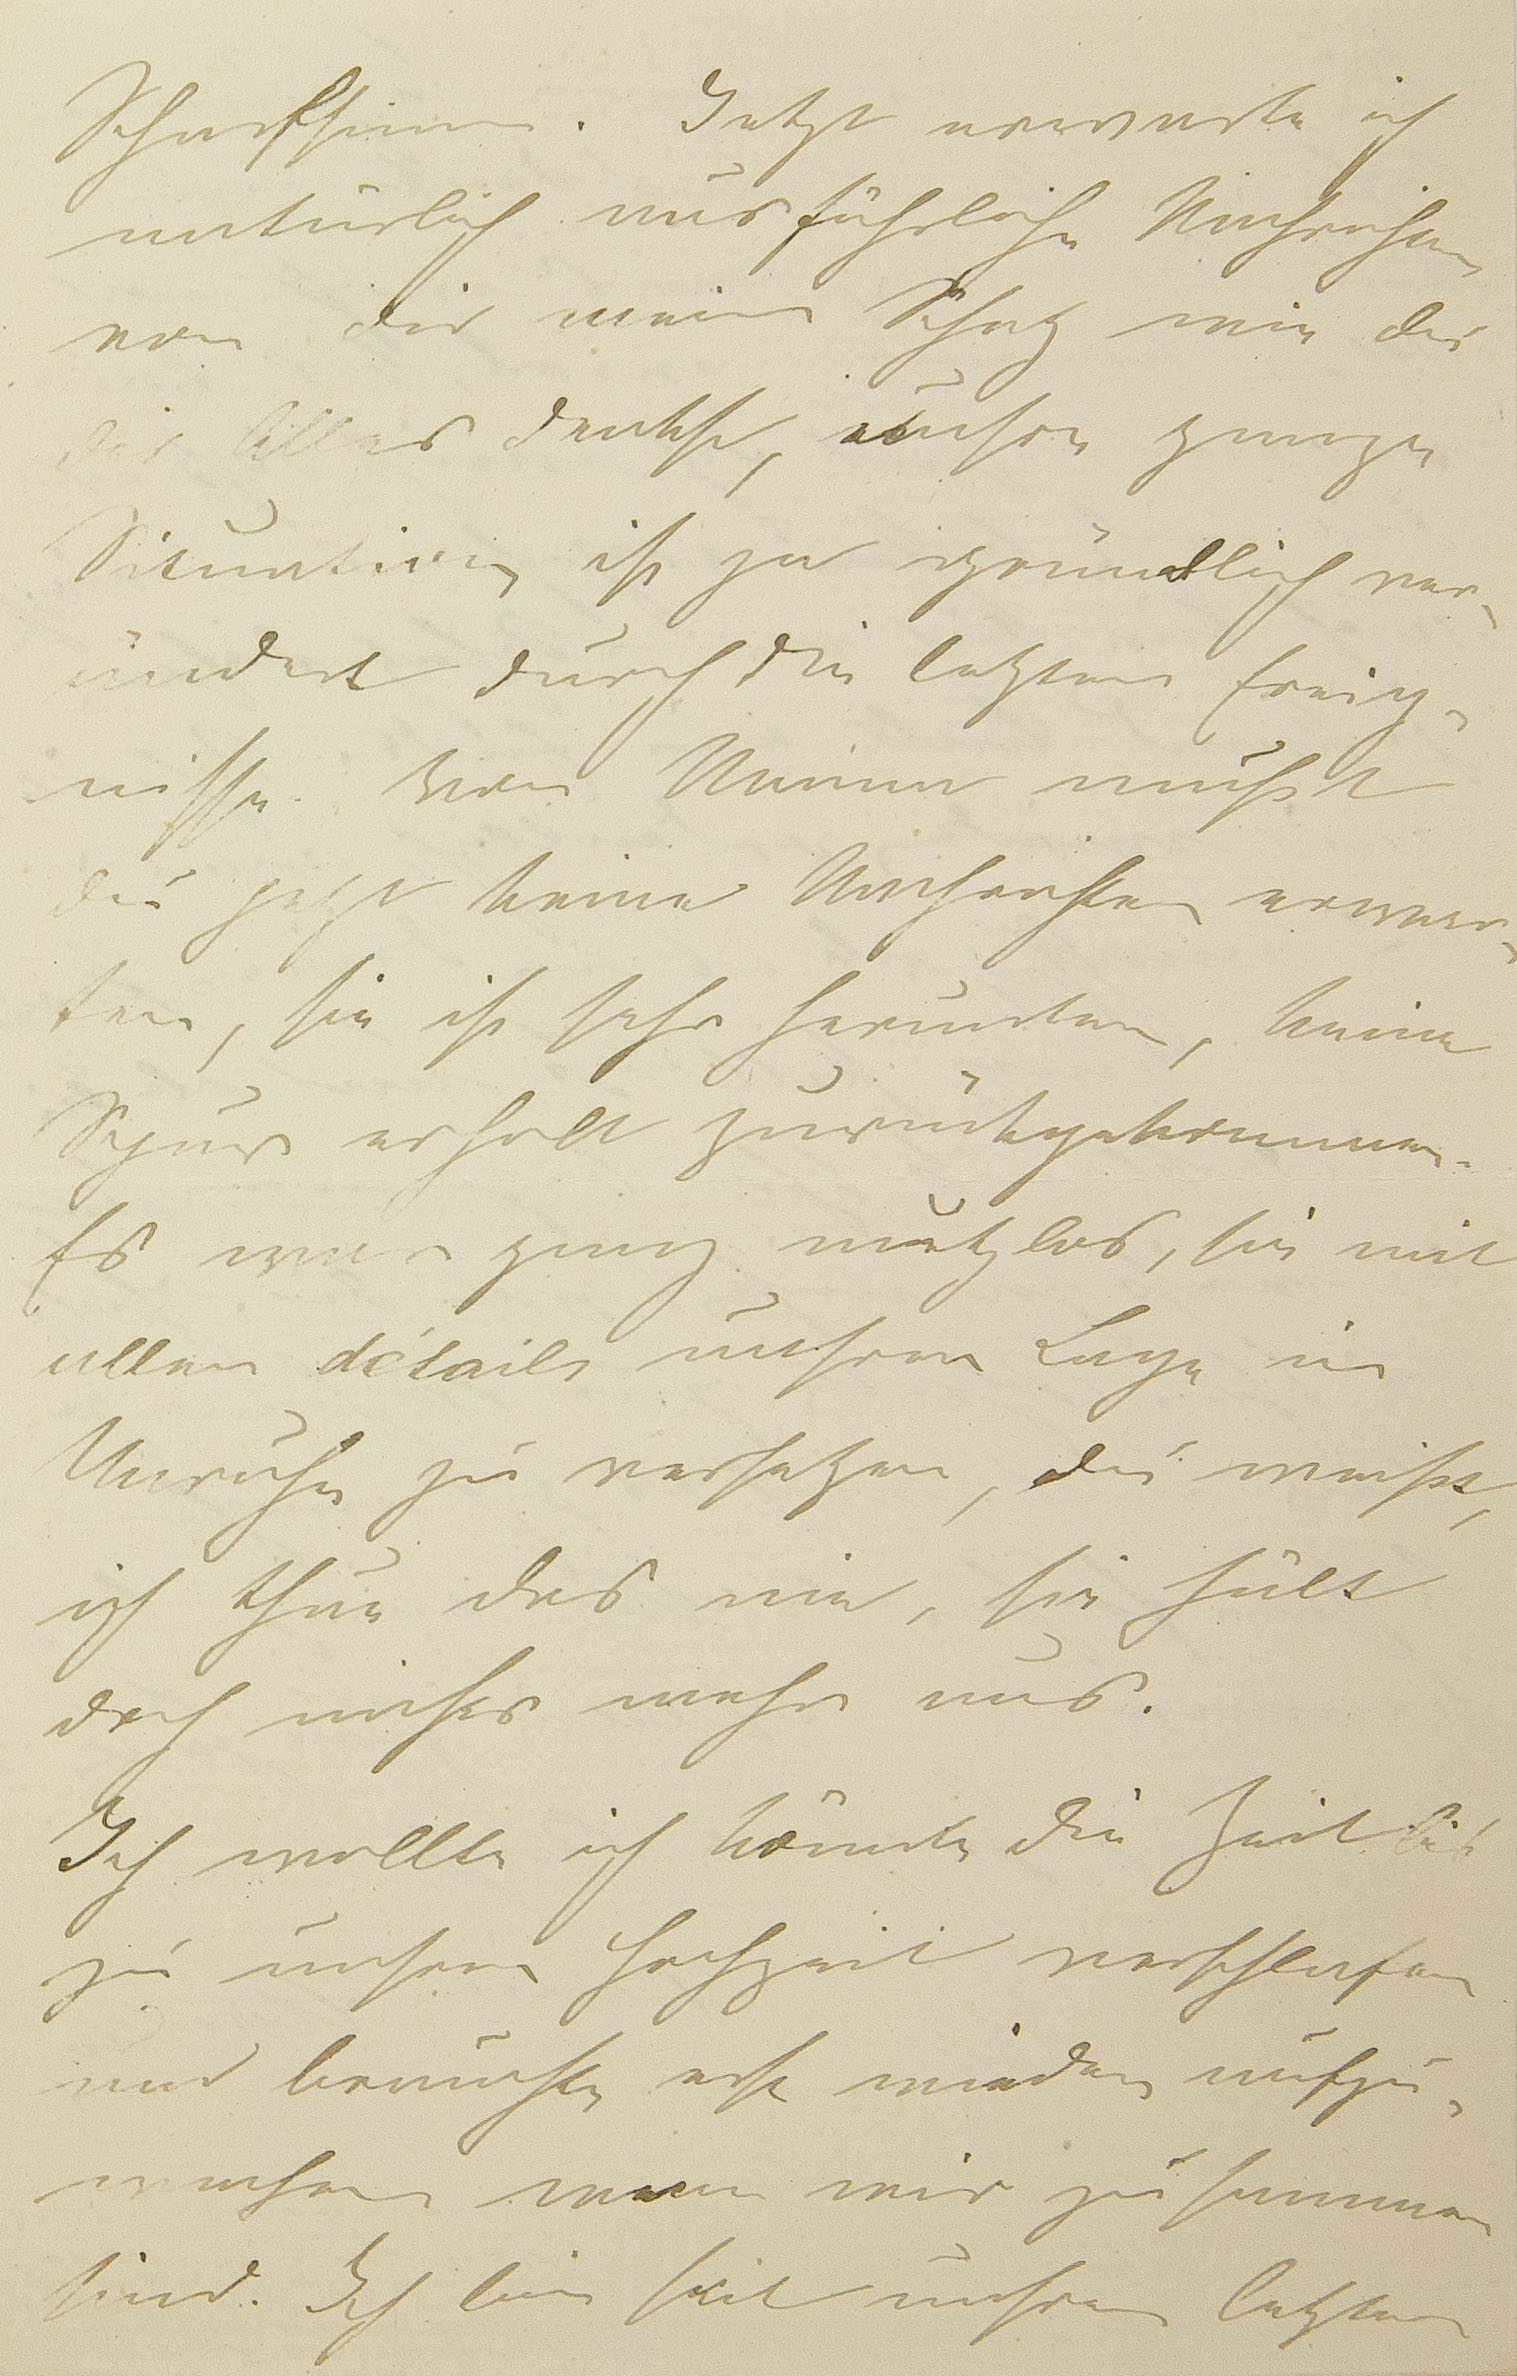 Scharfsinn. Jetzt erwarte ich
natürlich ausführliche Nachrichten
von dir mein Schatz wie du
dir Alles denkst, unsre ganze
Situation ist ja gründlich ver-
ändert durch die letzten Ereig-
nisse. Von Mama mußt
du jetzt keine Nachrichten erwar-
ten, sie ist sehr herunter, keine
Spur erholt zurückgekommen.
Es war ganz nutzlos, sie mit
allen détails unsrer Lage in
Unruhe zu versetzen, du weißt,
ich thue das nie, sie hält
doch nichts mehr aus.
Ich wollte ich könnte die Zeit bis
zu unsrer Hochzeit verschlafen
und brauchte erst wieder aufzu-
wachen wenn wir zusammen
sind. Ich bin seit unsrem letzten